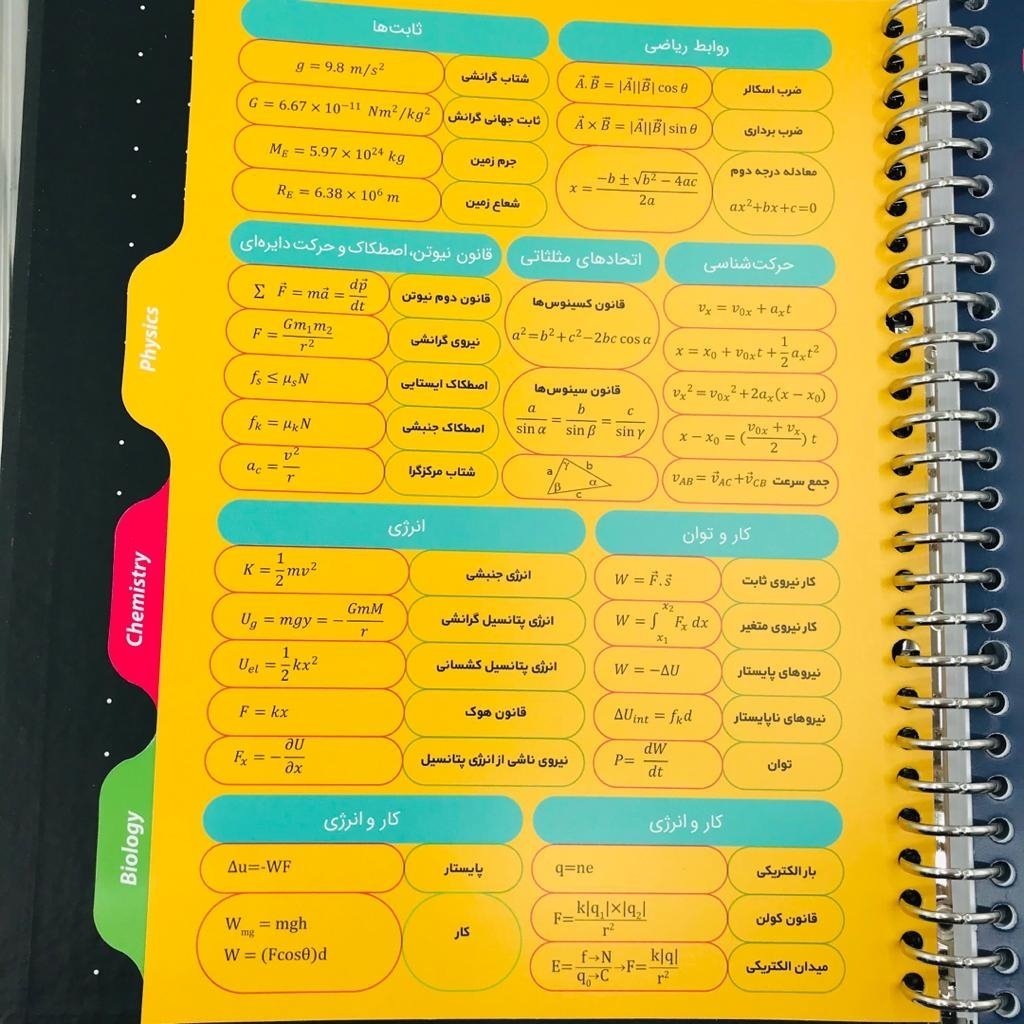 روابط ریاضی
ضرب اسکالر
$\vec{A}.\vec{B} = |\vec{A}||\vec{B}| \cos\theta$
ضرب برداری
$\vec{A} \times \vec{B} = |\vec{A}||\vec{B}| \sin\theta$
معادله درجه دوم
$ax^2+bx+c=0$
$x = \frac{-b \pm \sqrt{b^2 - 4ac}}{2a}$
ثابت‌ها
شتاب گرانشی
$g = 9.8\ m/s^2$
ثابت جهانی گرانش
$G = 6.67 \times 10^{-11}\ Nm^2/kg^2$
جرم زمین
$M_E = 5.97 \times 10^{24}\ kg$
شعاع زمین
$R_E = 6.38 \times 10^6\ m$
حرکت‌شناسی
$v_x = v_{0x} + a_x t$
$x = x_0 + v_{0x}t + \frac{1}{2}a_x t^2$
$v_x{}^2 = v_{0x}{}^2 + 2a_x(x - x_0)$
$x - x_0 = (\frac{v_{0x} + v_x}{2})\ t$
جمع سرعت
$v_{AB} = \vec{v}_{AC} + \vec{v}_{CB}$
اتحادهای مثلثاتی
قانون کسینوس‌ها
$a^2 = b^2 + c^2 - 2bc \cos\alpha$
قانون سینوس‌ها
$\frac{a}{\sin\alpha} = \frac{b}{\sin\beta} = \frac{c}{\sin\gamma}$
a γ b
β α
c
قانون نیوتن، اصطکاک و حرکت دایره‌ای
قانون دوم نیوتن
$\sum \vec{F} = m\vec{a} = \frac{d\vec{p}}{dt}$
نیروی گرانشی
$F = \frac{Gm_1m_2}{r^2}$
اصطکاک ایستایی
$f_s \leq \mu_s N$
اصطکاک جنبشی
$f_k = \mu_k N$
شتاب مرکزگرا
$a_c = \frac{v^2}{r}$
کار و توان
کار نیروی ثابت
$W = \vec{F}.\vec{s}$
کار نیروی متغیر
$W = \int_{x_1}^{x_2} F_x\,dx$
نیروهای پایستار
$W = -\Delta U$
نیروهای ناپایستار
$\Delta U_{int} = f_k d$
توان
$P = \frac{dW}{dt}$
انرژی
انرژی جنبشی
$K = \frac{1}{2}mv^2$
انرژی پتانسیل گرانشی
$U_g = mgy = -\frac{GmM}{r}$
انرژی پتانسیل کشسانی
$U_{el} = \frac{1}{2}kx^2$
قانون هوک
$F = kx$
نیروی ناشی از انرژی پتانسیل
$F_x = -\frac{\partial U}{\partial x}$
کار و انرژی
بار الکتریکی
q=ne
قانون کولن
$F=\frac{k|q_1|\times|q_2|}{r^2}$
میدان الکتریکی
$E=\frac{f \rightarrow N}{q_0 \rightarrow C} \rightarrow F=\frac{k|q|}{r^2}$
کار و انرژی
پایستار
Δu=-WF
کار
$W_{mg} = mgh$
W = (Fcosθ)d
Physics
Chemistry
Biology